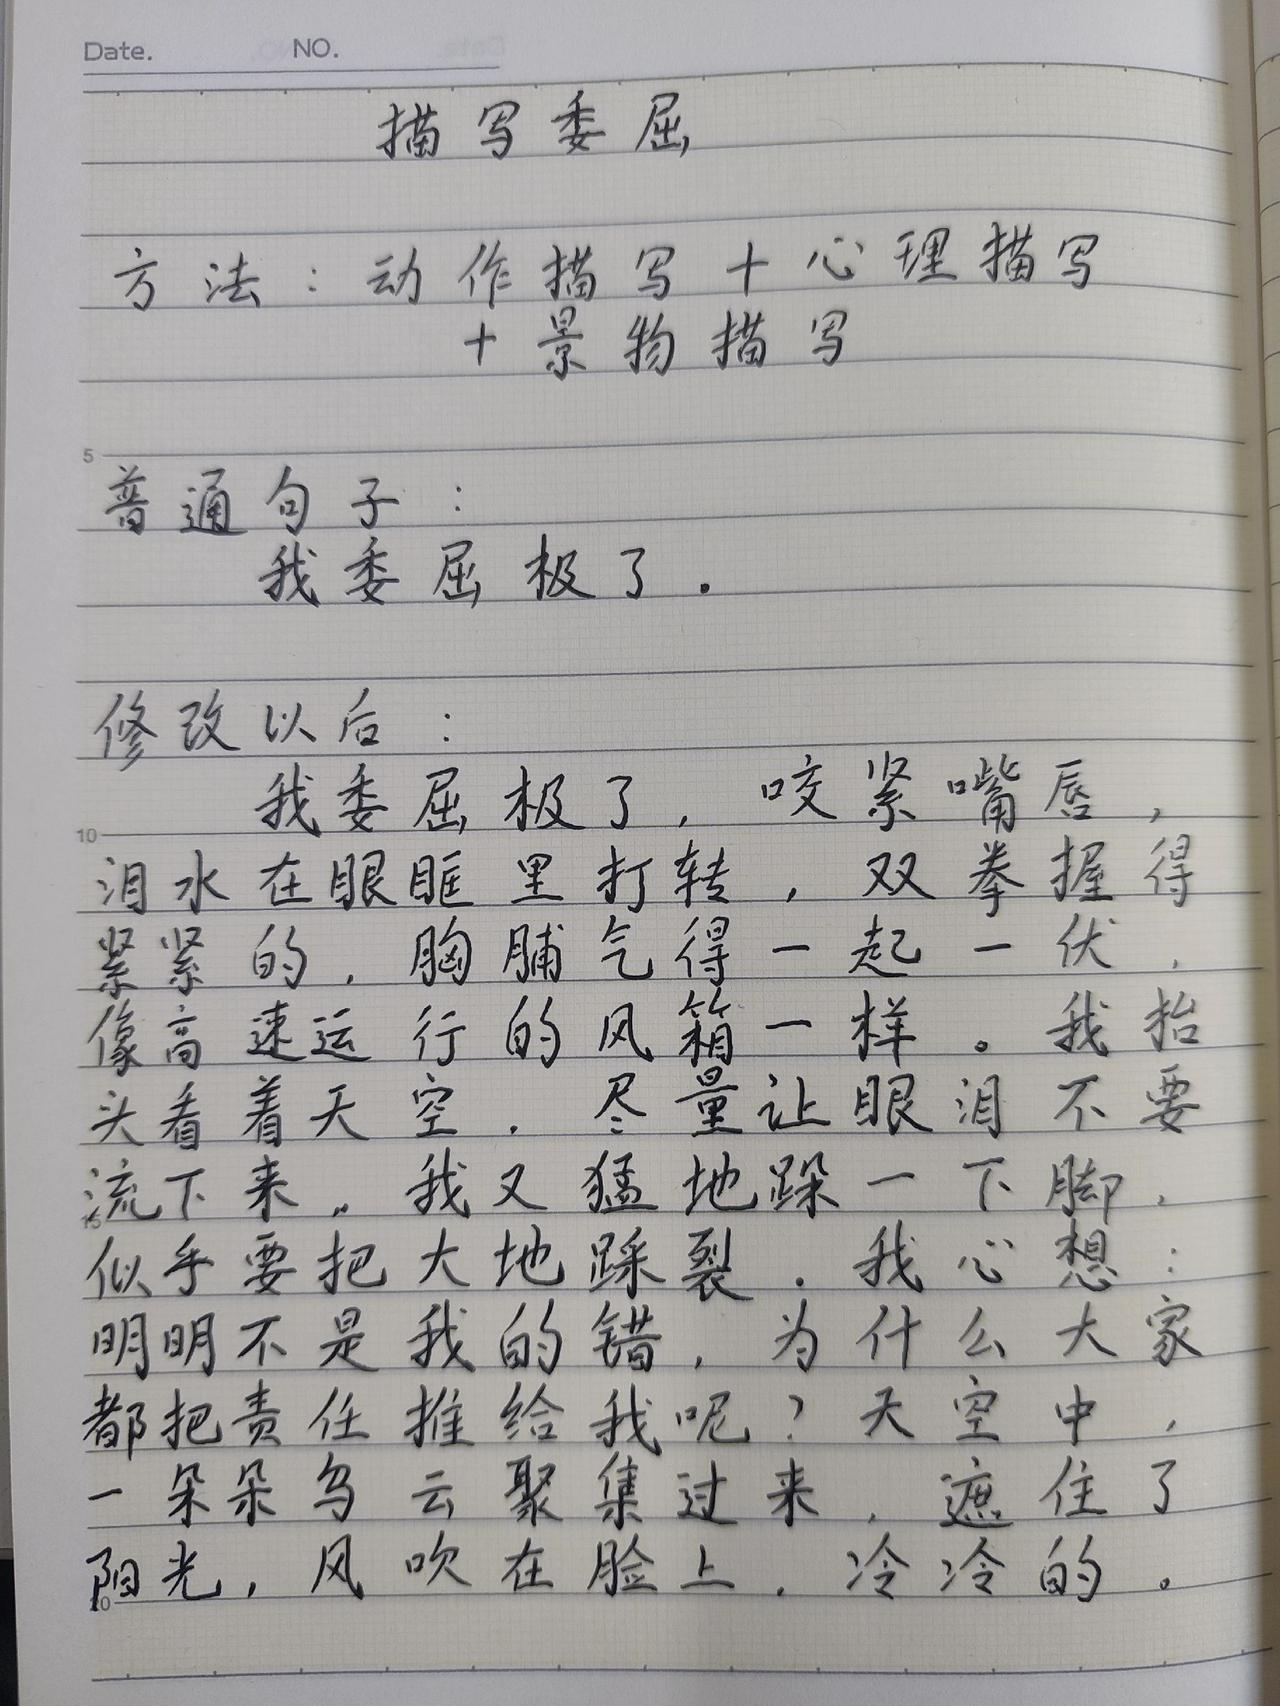 Date. NO.
描写委屈
方法：动作描写＋心理描写
＋景物描写
5
普通句子：
我委屈极了.
修改以后：
我委屈极了，咬紧嘴唇，
10
泪水在眼眶里打转，双拳握得
紧紧的，胸脯气得一起一伏，
像高速运行的风箱一样。我抬
头看着天空，尽量让眼泪不要
流下来。我又猛地跺一下脚，
15
似乎要把大地踩裂.我心想：
明明不是我的错，为什么大家
都把责任推给我呢？天空中，
一朵朵乌云聚集过来，遮住了
阳光，风吹在脸上，冷冷的。